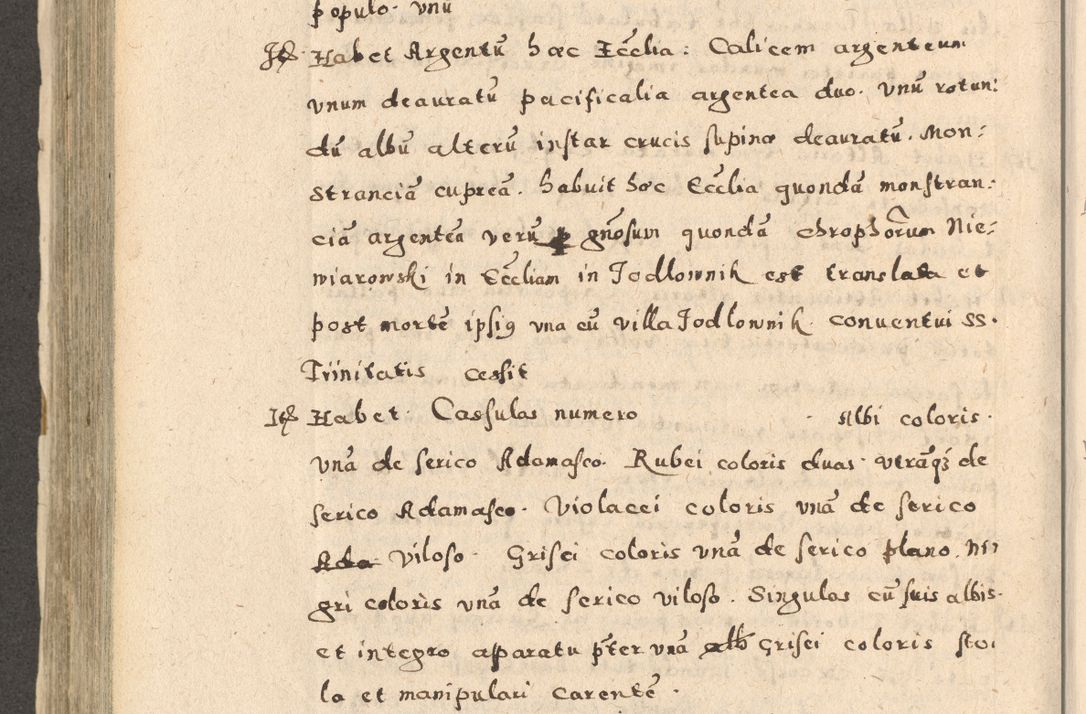 populo. vnū
Itē Habet Argentū hæc Eccĺia: Calicem argenteum
vnum deauratū pacificalia argentea duo. vnū rotun:
dū albū alterū instar crucis supino deauratū. Mon:
stranciā cupreā. habuit hæc Eccĺia quondā monstran:
ciā argenteā verū p gñosum quondā chrophorum Nie:
wiarowski in Eccĺiam in Jodłownik est translata et
post mortē ipsiꝰ vna cū villa Jodlownik conuentui SS.
Trinitatis cessit
Itē Habet. Cassulas numero Albi coloris.
vnā de serico Adamasco. Rubei coloris duas. vtrāqꝫ de
serico Adamasco. Violacei coloris vnā de serico
Ada viloso. Grisei coloris vnā de serico plano. Ni:
gri coloris vnā de serico viloso. Singulas cū suis albis.
et integro aparatu p̄ter vnā alb Grisei coloris sto:
la et manipulari carentē.